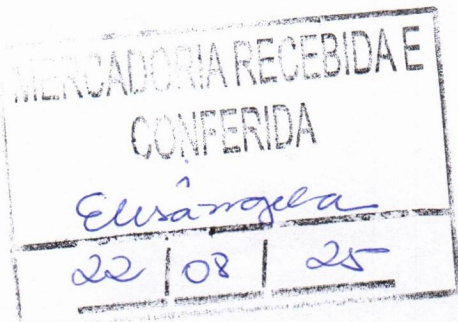 MERCADORIA RECEBIDA E
CONFERIDA
Elisângela
22 | 08 | 25